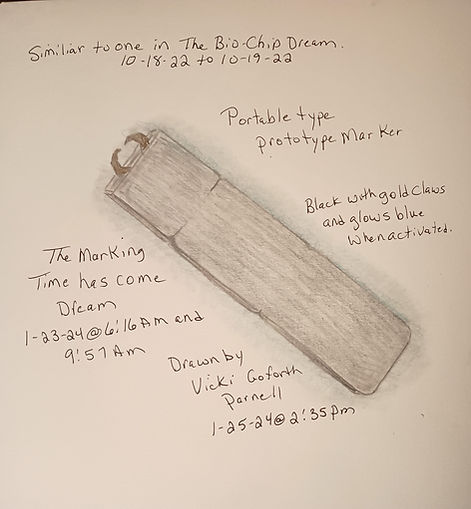 Similiar to one in The Bio-Chip Dream.
10-18-22 to 10-19-22
Portable type
Prototype Marker
Black with gold Claws
and glows blue
when activated.
The Marking
Time has come
Dream
1-23-24@6:16Am and
9:57Am
Drawn by
Vicki Goforth
Parnell
1-25-24@2:35pm